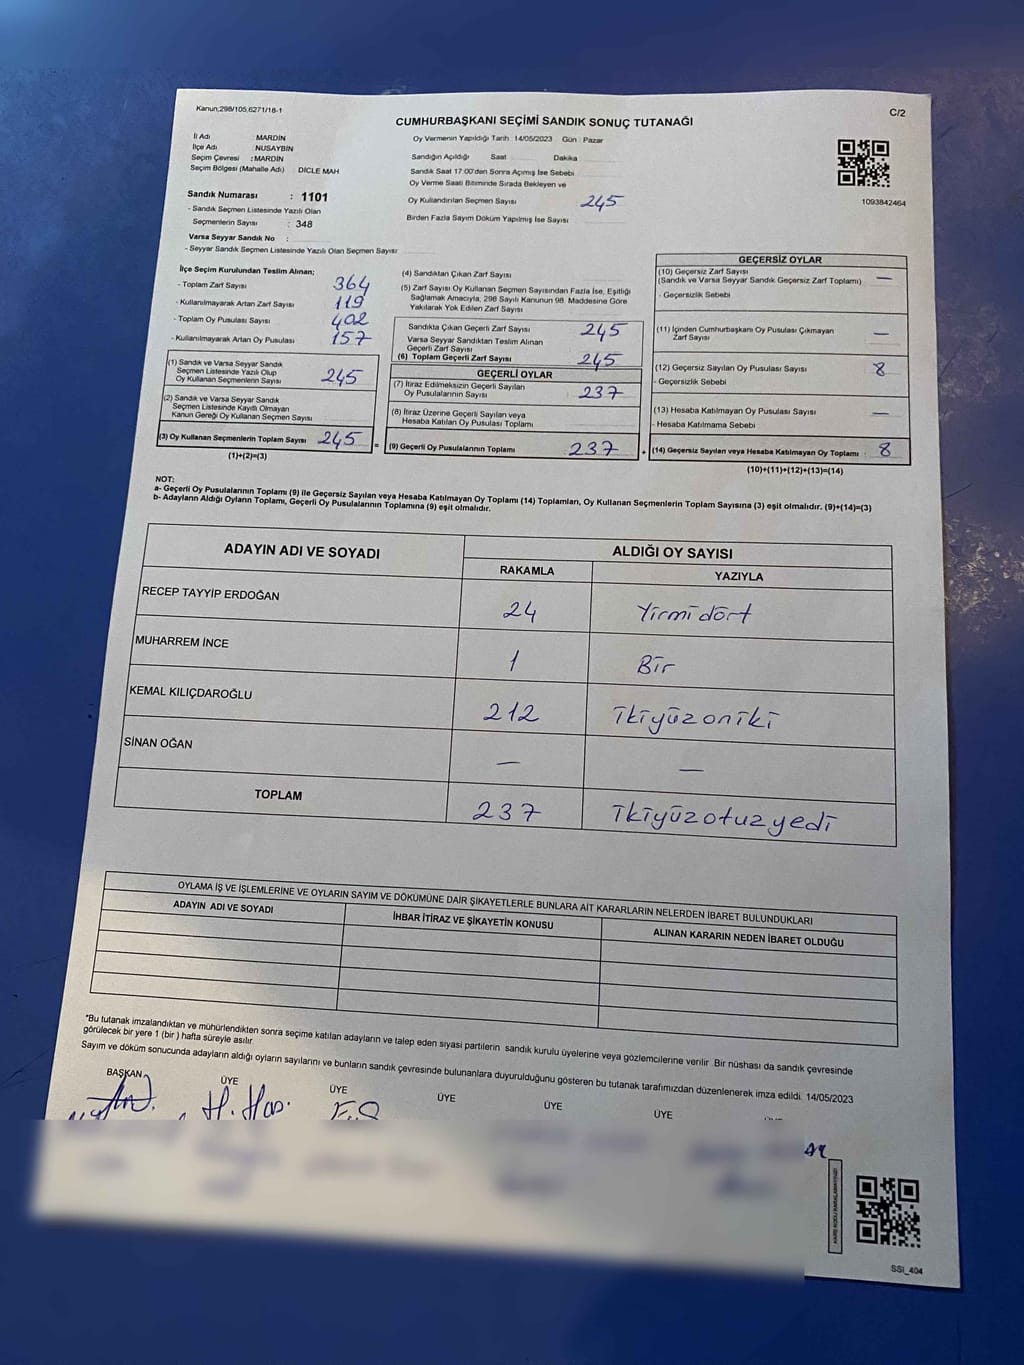 Kanun;298/105,6271/18-1
C/2
CUMHURBAŞKANI SEÇİMİ SANDIK SONUÇ TUTANAĞI
İl Adı MARDİN
İlçe Adı NUSAYBİN
Seçim Çevresi : MARDİN
Seçim Bölgesi (Mahalle Adı) DİCLE MAH
Sandık Numarası : 1101
- Sandık Seçmen Listesinde Yazılı Olan
Seçmenlerin Sayısı : 348
Varsa Seyyar Sandık No :
- Seyyar Sandık Seçmen Listesinde Yazılı Olan Seçmen Sayısı
Oy Vermenin Yapıldığı Tarih : 14/05/2023 Gün : Pazar
Sandığın Açıldığı Saat Dakika
Sandık Saat 17:00'den Sonra Açımış İse Sebebi
Oy Verme Saati Bitiminde Sırada Bekleyen ve
Oy Kullandırılan Seçmen Sayısı 245
Birden Fazla Sayım Döküm Yapılmış İse Sayısı
1093842464
İlçe Seçim Kurulundan Teslim Alınan;
- Toplam Zarf Sayısı 364
- Kullanılmayarak Artan Zarf Sayısı 119
- Toplam Oy Pusulası Sayısı 402
- Kullanılmayarak Artan Oy Pusulası 157
(1) Sandık ve Varsa Seyyar Sandık
Seçmen Listesinde Yazılı Olup
Oy Kullanan Seçmenlerin Sayısı 245
(2) Sandık ve Varsa Seyyar Sandık
Seçmen Listesinde Kayıtlı Olmayan
Kanun Gereği Oy Kullanan Seçmen Sayısı
(3) Oy Kullanan Seçmenlerin Toplam Sayısı 245 =
(1)+(2)=(3)
(4) Sandıktan Çıkan Zarf Sayısı
(5) Zarf Sayısı Oy Kullanan Seçmen Sayısından Fazla İse, Eşitliği
Sağlamak Amacıyla, 298 Sayılı Kanunun 98. Maddesine Göre
Yakılarak Yok Edilen Zarf Sayısı
Sandıkta Çıkan Geçerli Zarf Sayısı 245
Varsa Seyyar Sandıktan Teslim Alınan
Geçerli Zarf Sayısı
(6) Toplam Geçerli Zarf Sayısı 245
GEÇERLİ OYLAR
(7) İtiraz Edilmeksizin Geçerli Sayılan
Oy Pusulalarının Sayısı 237
(8) İtiraz Üzerine Geçerli Sayılan veya
Hesaba Katılan Oy Pusulası Toplamı
(9) Geçerli Oy Pusulalarının Toplamı 237 +
GEÇERSİZ OYLAR
(10) Geçersiz Zarf Sayısı
(Sandık ve Varsa Seyyar Sandık Geçersiz Zarf Toplamı) —
- Geçersizlik Sebebi
(11) İçinden Cumhurbaşkanı Oy Pusulası Çıkmayan
Zarf Sayısı —
(12) Geçersiz Sayılan Oy Pusulası Sayısı 8
- Geçersizlik Sebebi
(13) Hesaba Katılmayan Oy Pusulası Sayısı —
- Hesaba Katılmama Sebebi
(14) Geçersiz Sayılan veya Hesaba Katılmayan Oy Toplamı : 8
(10)+(11)+(12)+(13)=(14)
NOT:
a- Geçerli Oy Pusulalarının Toplamı (9) ile Geçersiz Sayılan veya Hesaba Katılmayan Oy Toplamı (14) Toplamları, Oy Kullanan Seçmenlerin Toplam Sayısına (3) eşit olmalıdır. (9)+(14)=(3)
b- Adayların Aldığı Oyların Toplamı, Geçerli Oy Pusulalarının Toplamına (9) eşit olmalıdır.
ADAYIN ADI VE SOYADI ALDIĞI OY SAYISI
RAKAMLA YAZIYLA
RECEP TAYYİP ERDOĞAN 24 Yirmi dört
MUHARREM İNCE 1 Bir
KEMAL KILIÇDAROĞLU 212 ikiyüzoniki
SİNAN OĞAN — —
TOPLAM 237 ikiyüzotuzyedi
OYLAMA İŞ VE İŞLEMLERİNE VE OYLARIN SAYIM VE DÖKÜMÜNE DAİR ŞİKAYETLERLE BUNLARA AİT KARARLARIN NELERDEN İBARET BULUNDUKLARI
ADAYIN ADI VE SOYADI İHBAR İTİRAZ VE ŞİKAYETİN KONUSU ALINAN KARARIN NEDEN İBARET OLDUĞU
*Bu tutanak imzalandıktan ve mühürlendikten sonra seçime katılan adayların ve talep eden siyasi partilerin sandık kurulu üyelerine veya gözlemcilerine verilir. Bir nüshası da sandık çevresinde
görülecek bir yere 1 (bir) hafta süreyle asılır.
Sayım ve döküm sonucunda adayların aldığı oyların sayılarını ve bunların sandık çevresinde bulunanlara duyurulduğunu gösteren bu tutanak tarafımızdan düzenlenerek imza edildi. 14/05/2023
BAŞKAN ÜYE ÜYE ÜYE ÜYE ÜYE
H. Has.
SSI_404